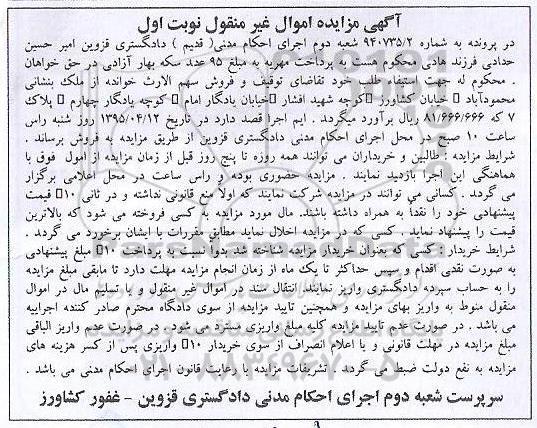 آگهی مزایده اموال غیر منقول نوبت اول
در پرونده به شماره ۹۴۰۷۳۵/۲ شعبه دوم اجرای احکام مدنی( قدیم ) دادگستری قزوین امیر حسین
حدادی فرزند هادی محکوم هست به پرداخت مهریه به مبلغ ۹۵ عدد سکه بهار آزادی در حق خواهان
. محکوم له جهت استیفاء طلب خود تقاضای توقیف و فروش سهم الارث خوانده از ملک بنشانی
محمودآباد خیابان کشاورز کوچه شهید افشار خیابان یادگار امام کوچه یادگار چهارم پلاک
۷ که ۸۱/۶۶۶/۶۶۶ ریال برآورد میگردد . ایم اجرا قصد دارد در تاریخ ۱۳۹۵/۰۴/۱۲ روز شنبه راس
ساعت ۱۰ صبح در محل اجرای احکام مدنی دادگستری قزوین از طریق مزایده به فروش برساند .
شرایط مزایده : طالبین و خریداران می توانند همه روزه تا پنج روز قبل از زمان مزایده از اموال فوق با
هماهنگی این اجرا بازدید نمایند . مزایده حضوری بوده و راس ساعت در محل اعلامی برگزار
می گردد . کسانی می توانند در مزایده شرکت نمایند که اولاً منع قانونی نداشته و در ثانی ۱۰ قیمت
پیشنهادی خود را نقداً به همراه داشته باشند. مال مورد مزایده به کسی فروخته می شود که بالاترین
قیمت را پیشنهاد نماید . کسی که در مزایده اخلال نماید مطابق مقررات با ایشان برخورد می گردد .
شرایط خریدار : کسی که بعنوان خریدار مزایده شناخته شد بدوا نسبت به پرداخت ۱۰ مبلغ پیشنهادی
به صورت نقدی اقدام و سپس حداکثر تا یک ماه از زمان انجام مزایده مهلت دارد تا مابقی مبلغ مزایده
را به حساب سپرده دادگستری واریز نمایند. انتقال سند در اموال غیر منقول و یا تسلیم مال در اموال
منقول منوط به واریز بهای مزایده و همچنین تایید مزایده از سوی دادگاه محترم صادر کننده اجراییه
می باشد . در صورت عدم تایید مزایده کلیه مبلغ واریزی مسترد می شود . در صورت عدم واریز الباقی
مبلغ مزایده در مهلت قانونی و یا اعلام انصراف از سوی خریدار ۱۰ واریزی پس از کسر هزینه های
مزایده به نفع دولت ضبط می گردد . تشریفات مزایده با رعایت قانون اجرای احکام مدنی می باشد .
سرپرست شعبه دوم اجرای احکام مدنی دادگستری قزوین - غفور کشاورز